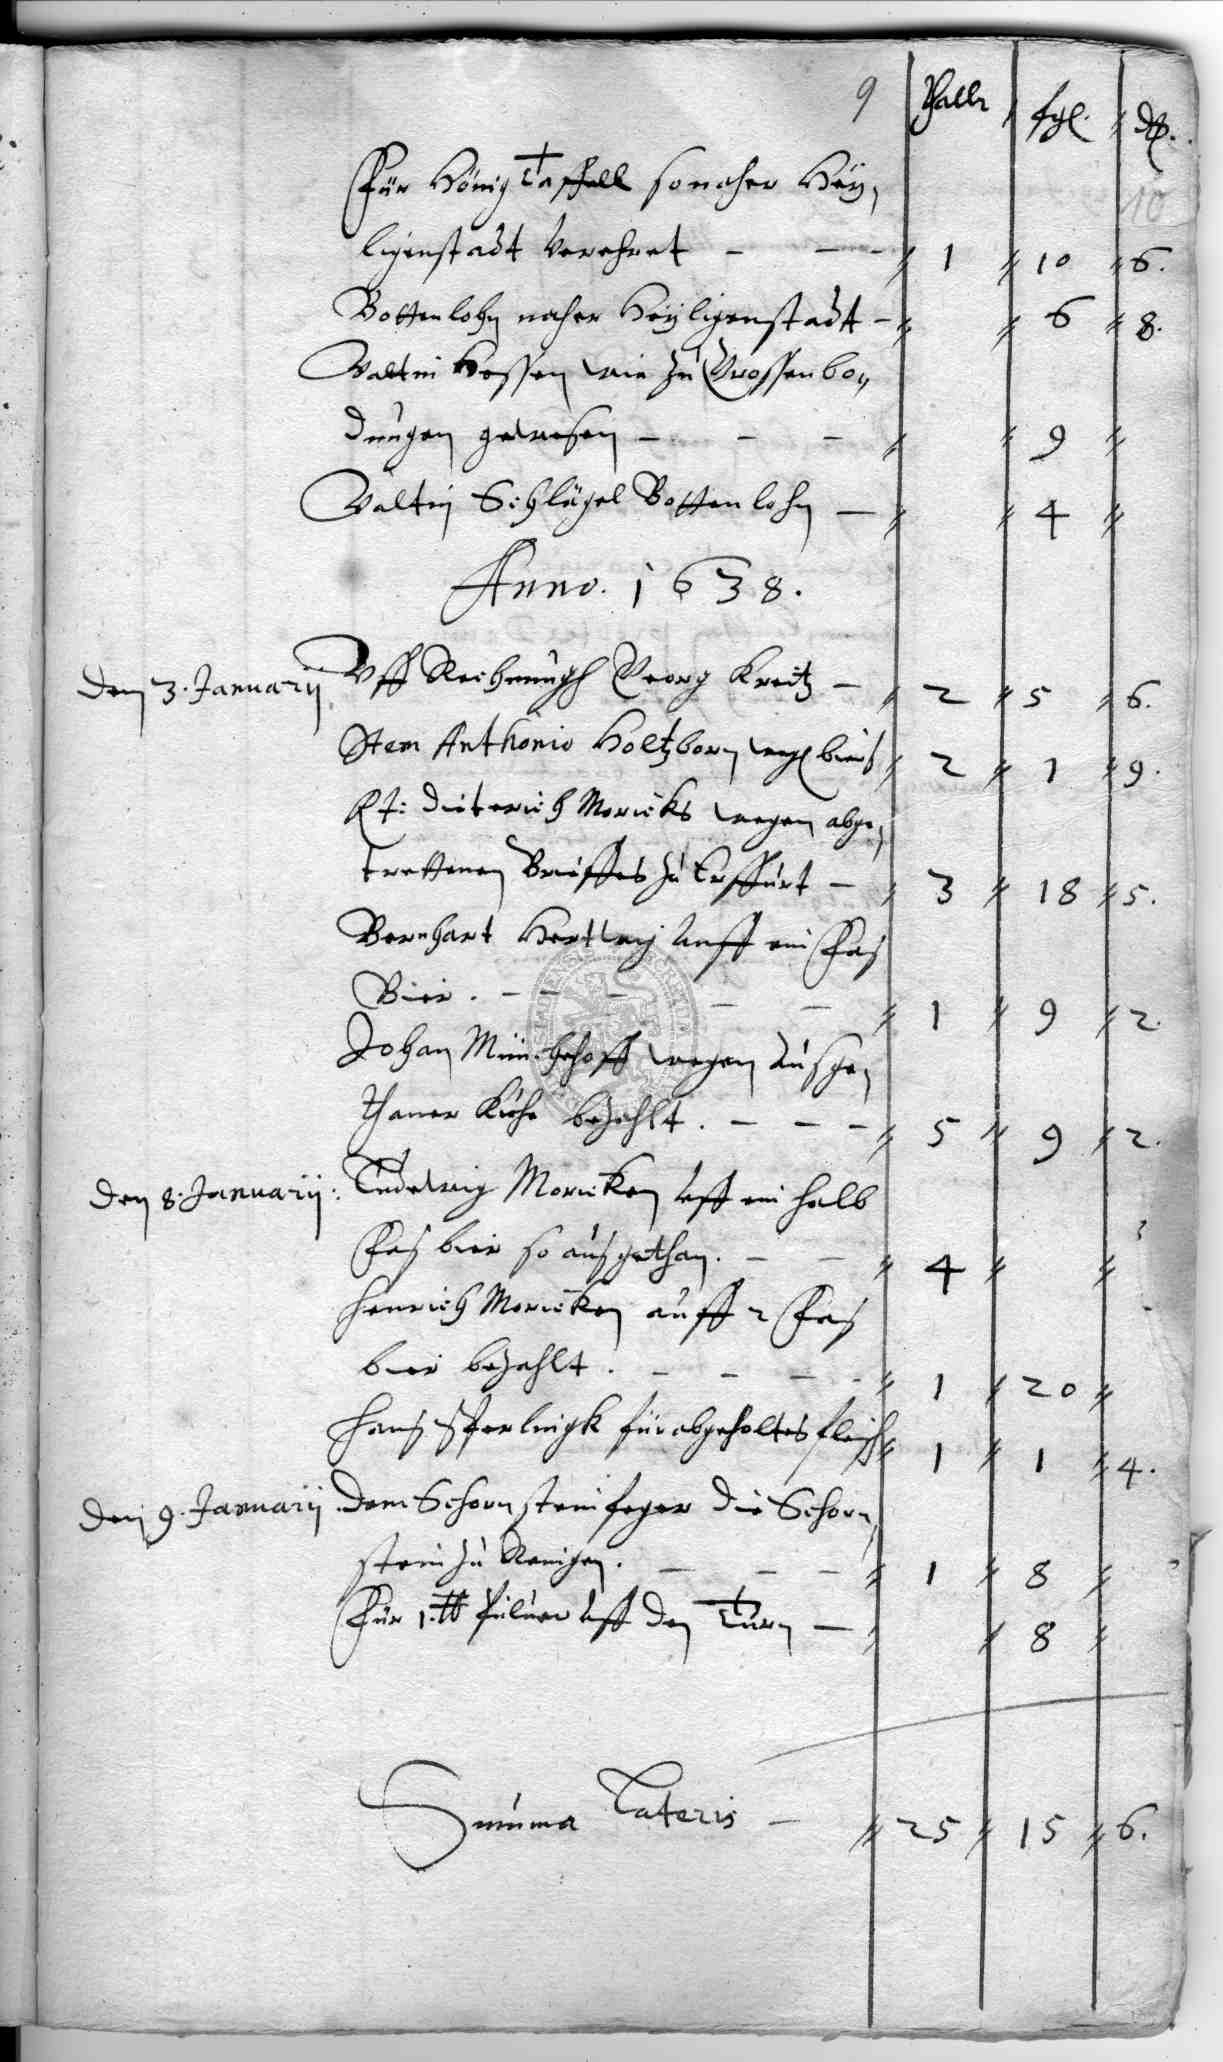 9 Thallr ßgl. d.
10
Für König Taffell so naher Heÿ,
ligenstadt Verehret - - - 1 10 6.
Bottenlohn naher Heÿligenstadt - 6 8.
Valtin Hessen wie zu Grossenbo,,
dungen gewesen - - - 9
Valtin Schlägel Bottenlohn - 4
Anno. 1638.
den 3. Januarij Vff Rechnungh Georg Kreitz - 2 5 6.
Item Anthonio Holtzborn weg. biers 2 1 9.
It: Dieterich Moricks wegen abge,
trettenen Brieffes zu Erffurt - 3 18 5.
Bernhart Hertwig auff ein Fas
Bier. - - - - - 1 9 2.
Johan Münchehoff wegen ausge,
thaner Kühe bezahlt. - - - 5 9 2.
den 8. Januarij: Ludewig Moricken Vff ein halb
Fas bier so ausgethan. - - 4
Henrich Moricken auff 2 Fas
bier bezahlt. - - - - 1 20
Hans Sperlingk für abgeholtes fleisch 1 1 4.
den 9. Januarij. dem Schornsteinfeger die Schorn,
stein zu Reinigen. - - - 1 8
Für 1. ℔ Puluer Vff den Turn - 8
Summa Lateris - 25 15 6.